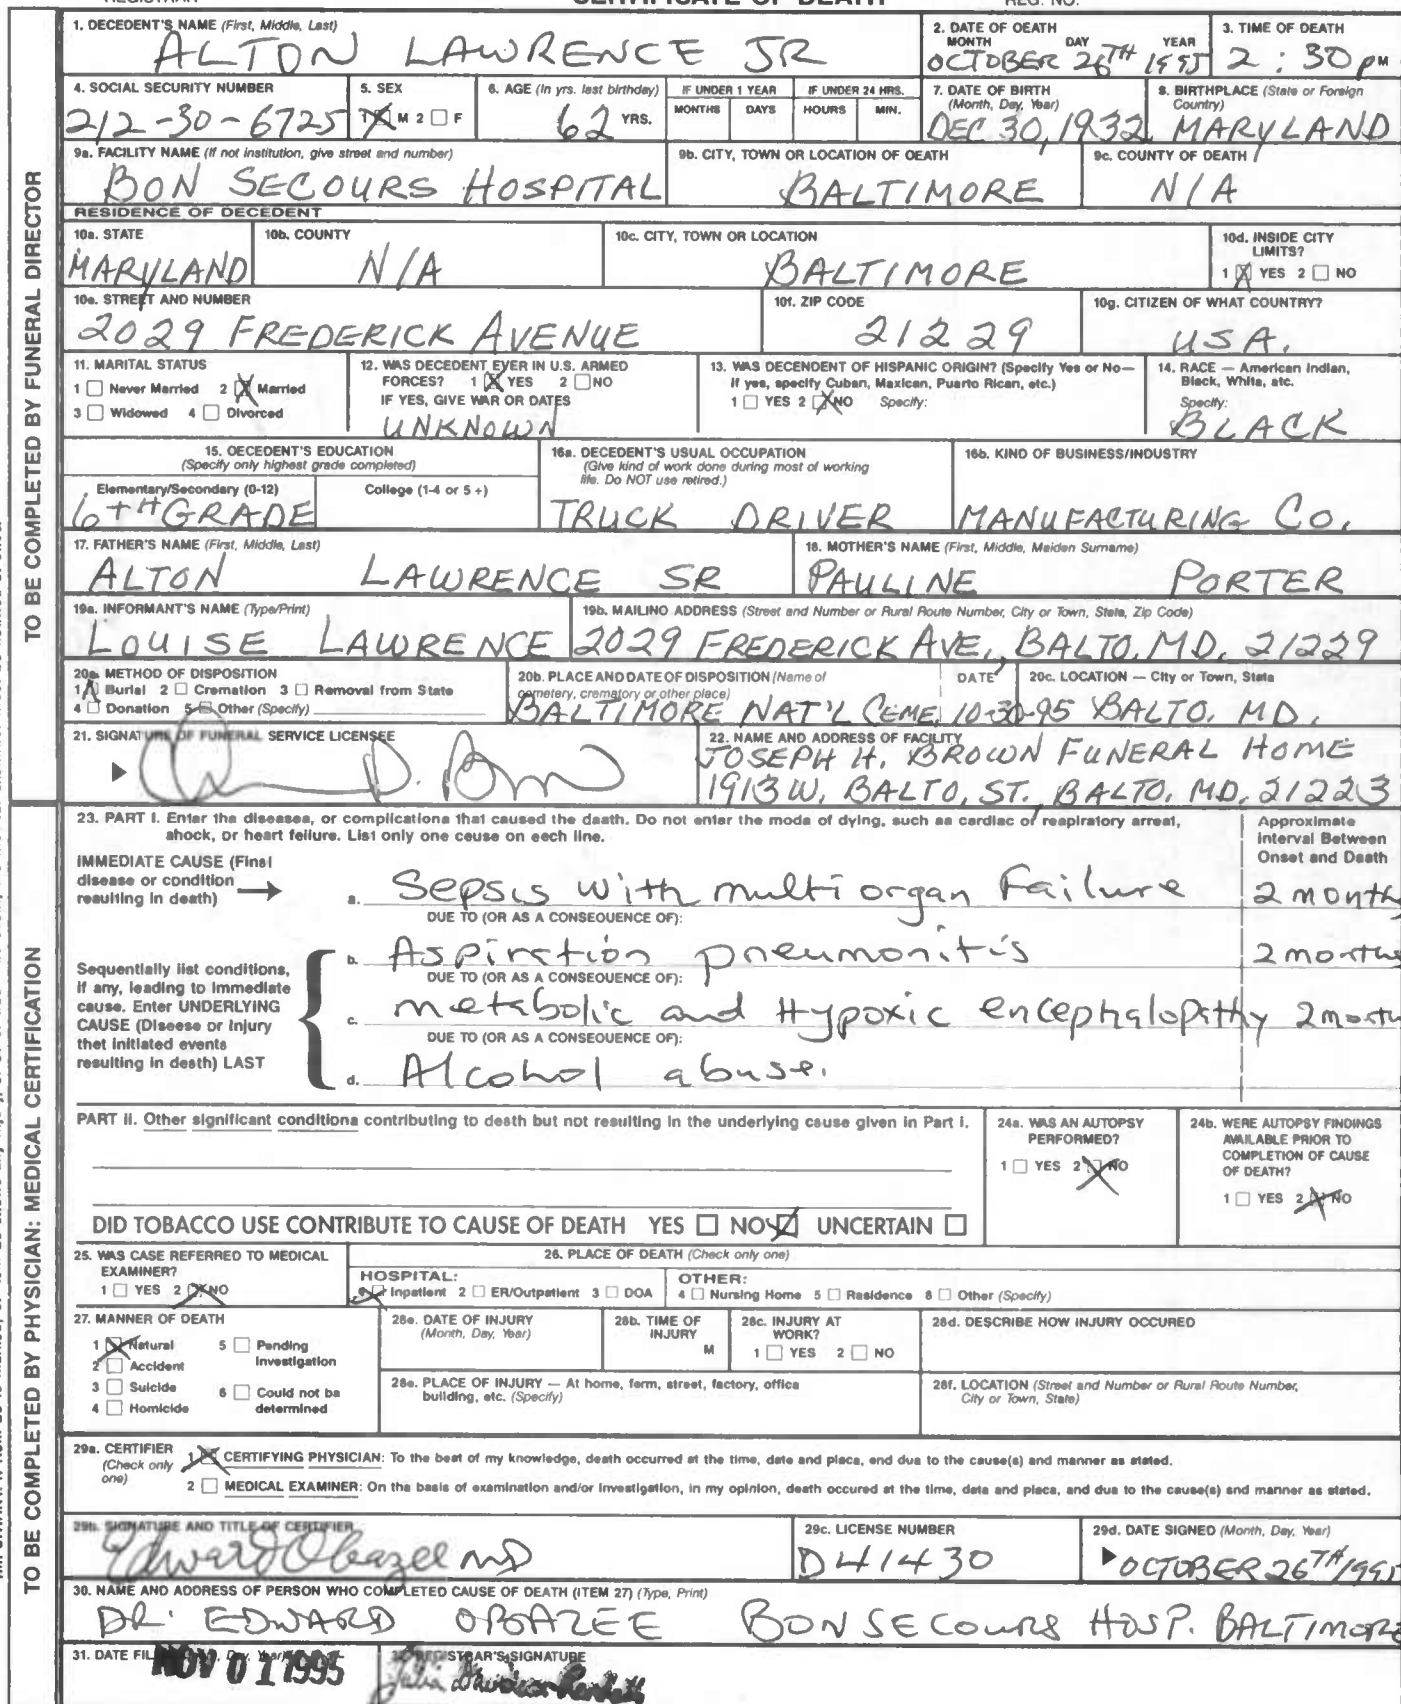 CERTIFICATE OF DEATH
REG. NO.
1. DECEDENT'S NAME (First, Middle, Last)
ALTON LAWRENCE JR
2. DATE OF DEATH
MONTH DAY YEAR
OCTOBER 26TH 1995
3. TIME OF DEATH
2:30 PM
4. SOCIAL SECURITY NUMBER
212-30-6725
5. SEX
1 M 2 F
6. AGE (In yrs. last birthday)
62 YRS.
IF UNDER 1 YEAR
MONTHS DAYS
IF UNDER 24 HRS.
HOURS MIN.
7. DATE OF BIRTH
(Month, Day, Year)
DEC 30, 1932
8. BIRTHPLACE (State or Foreign Country)
MARYLAND
9a. FACILITY NAME (If not institution, give street and number)
BON SECOURS HOSPITAL
9b. CITY, TOWN OR LOCATION OF DEATH
BALTIMORE
9c. COUNTY OF DEATH
N/A
RESIDENCE OF DECEDENT
10a. STATE
MARYLAND
10b. COUNTY
N/A
10c. CITY, TOWN OR LOCATION
BALTIMORE
10d. INSIDE CITY LIMITS?
1 YES 2 NO
10e. STREET AND NUMBER
2029 FREDERICK AVENUE
10f. ZIP CODE
21229
10g. CITIZEN OF WHAT COUNTRY?
USA.
11. MARITAL STATUS
1 Never Married 2 Married
3 Widowed 4 Divorced
12. WAS DECEDENT EVER IN U.S. ARMED
FORCES? 1 YES 2 NO
IF YES, GIVE WAR OR DATES
UNKNOWN
13. WAS DECENDENT OF HISPANIC ORIGIN? (Specify Yes or No—
If yes, specify Cuban, Mexican, Puerto Rican, etc.)
1 YES 2 NO Specify:
14. RACE — American Indian,
Black, White, etc.
Specify:
BLACK
15. DECEDENT'S EDUCATION
(Specify only highest grade completed)
Elementary/Secondary (0-12)
6TH GRADE
College (1-4 or 5+)
16a. DECEDENT'S USUAL OCCUPATION
(Give kind of work done during most of working
life. Do NOT use retired.)
TRUCK DRIVER
16b. KIND OF BUSINESS/INDUSTRY
MANUFACTURING CO.
17. FATHER'S NAME (First, Middle, Last)
ALTON LAWRENCE SR
18. MOTHER'S NAME (First, Middle, Maiden Surname)
PAULINE PORTER
19a. INFORMANT'S NAME (Type/Print)
LOUISE LAWRENCE
19b. MAILING ADDRESS (Street and Number or Rural Route Number, City or Town, State, Zip Code)
2029 FREDERICK AVE., BALTO. MD. 21229
20a. METHOD OF DISPOSITION
1 Burial 2 Cremation 3 Removal from State
4 Donation 5 Other (Specify)
20b. PLACE AND DATE OF DISPOSITION (Name of
cemetery, crematory or other place)
DATE
BALTIMORE NAT'L CEME. 10-30-95
20c. LOCATION — City or Town, State
BALTO. MD.
21. SIGNATURE OF FUNERAL SERVICE LICENSEE
22. NAME AND ADDRESS OF FACILITY
JOSEPH H. BROWN FUNERAL HOME
1913 W. BALTO. ST., BALTO. MD. 21223
TO BE COMPLETED BY FUNERAL DIRECTOR
23. PART I. Enter the diseases, or complications that caused the death. Do not enter the mode of dying, such as cardiac or respiratory arrest,
shock, or heart failure. List only one cause on each line.
Approximate
Interval Between
Onset and Death
IMMEDIATE CAUSE (Final
disease or condition
resulting in death)
a. Sepsis with multi organ Failure 2 months
DUE TO (OR AS A CONSEQUENCE OF):
b. Aspiration pneumonitis 2 months
DUE TO (OR AS A CONSEQUENCE OF):
c. metabolic and Hypoxic encephalopathy 2 months
DUE TO (OR AS A CONSEQUENCE OF):
d. Alcohol abuse.
Sequentially list conditions,
if any, leading to immediate
cause. Enter UNDERLYING
CAUSE (Disease or injury
that initiated events
resulting in death) LAST
PART II. Other significant conditions contributing to death but not resulting in the underlying cause given in Part I.
24a. WAS AN AUTOPSY
PERFORMED?
1 YES 2 NO
24b. WERE AUTOPSY FINDINGS
AVAILABLE PRIOR TO
COMPLETION OF CAUSE
OF DEATH?
1 YES 2 NO
DID TOBACCO USE CONTRIBUTE TO CAUSE OF DEATH YES NO UNCERTAIN
25. WAS CASE REFERRED TO MEDICAL
EXAMINER?
1 YES 2 NO
26. PLACE OF DEATH (Check only one)
HOSPITAL:
Inpatient 2 ER/Outpatient 3 DOA
OTHER:
4 Nursing Home 5 Residence 6 Other (Specify)
27. MANNER OF DEATH
1 Natural 5 Pending Investigation
2 Accident
3 Suicide 6 Could not be determined
4 Homicide
28a. DATE OF INJURY
(Month, Day, Year)
28b. TIME OF
INJURY
M
28c. INJURY AT
WORK?
1 YES 2 NO
28d. DESCRIBE HOW INJURY OCCURED
28e. PLACE OF INJURY — At home, farm, street, factory, office
building, etc. (Specify)
28f. LOCATION (Street and Number or Rural Route Number,
City or Town, State)
29a. CERTIFIER
(Check only
one)
1 CERTIFYING PHYSICIAN: To the best of my knowledge, death occurred at the time, date and place, and due to the cause(s) and manner as stated.
2 MEDICAL EXAMINER: On the basis of examination and/or investigation, in my opinion, death occured at the time, date and place, and due to the cause(s) and manner as stated.
29b. SIGNATURE AND TITLE OF CERTIFIER
Edward Obazee MD
29c. LICENSE NUMBER
D41430
29d. DATE SIGNED (Month, Day, Year)
OCTOBER 26TH 1995
30. NAME AND ADDRESS OF PERSON WHO COMPLETED CAUSE OF DEATH (ITEM 27) (Type, Print)
DR. EDWARD OBAZEE BON SECOURS HOSP. BALTIMORE
31. DATE FILED (Month, Day, Year)
NOV 01 1995
REGISTRAR'S SIGNATURE
TO BE COMPLETED BY PHYSICIAN: MEDICAL CERTIFICATION